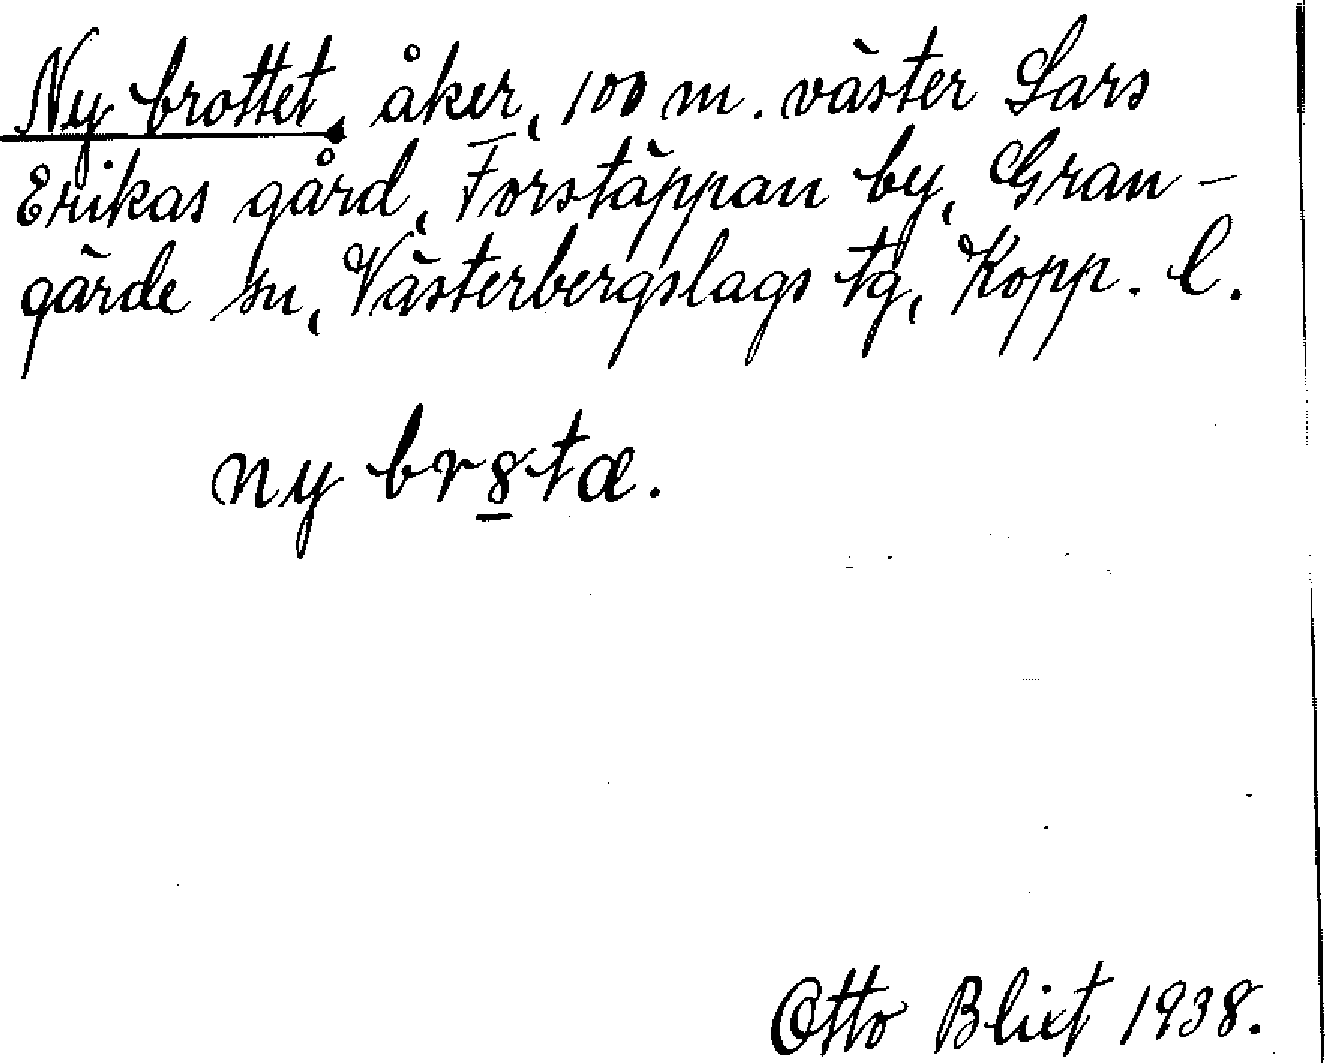 Ny brottet, åker, 100 m. väster Lars
Erikas gård, Forstäppan by, Gran-
gärde sn, Västerbergslags tg, Kopp. l.
ny br8ta.
Otto Blixt 1938.